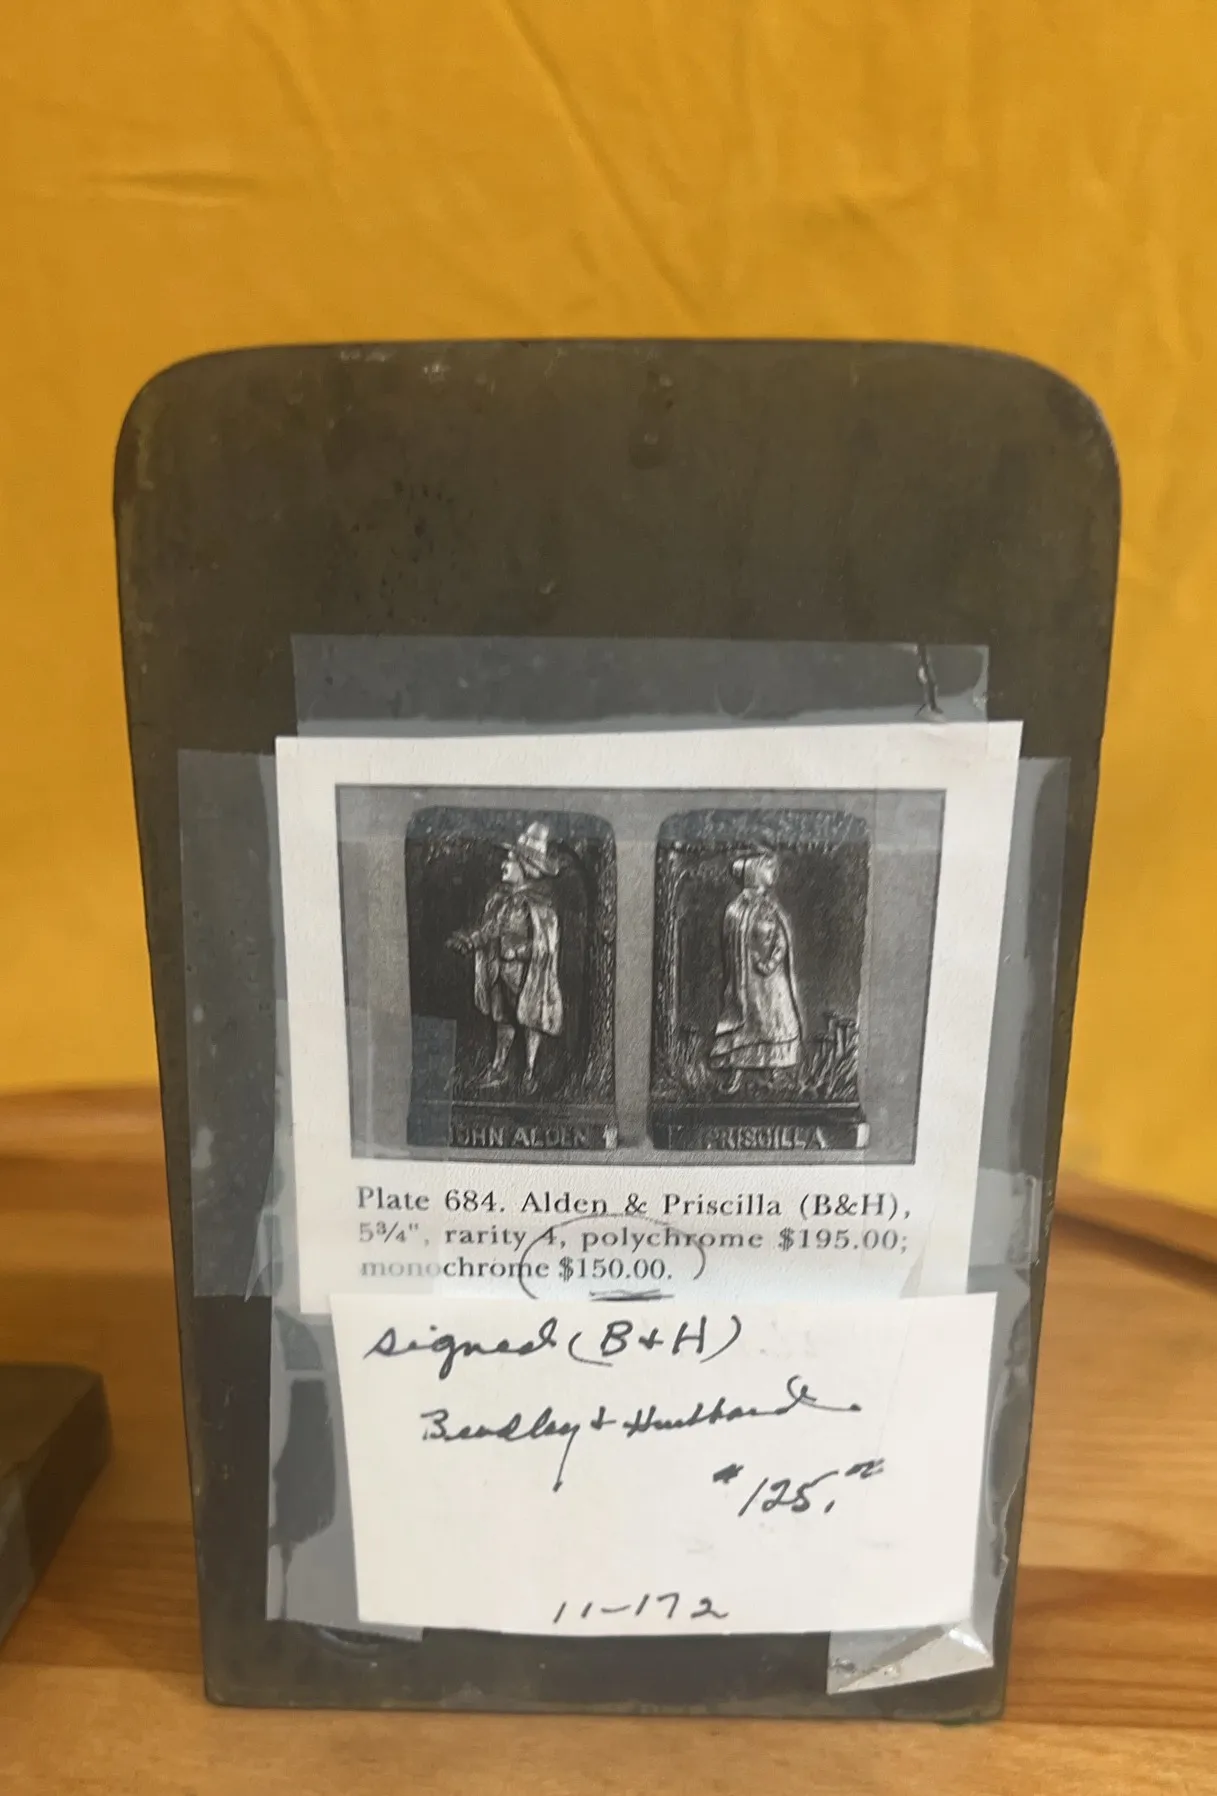 JOHN ALDEN
PRISCILLA
Plate 684. Alden & Priscilla (B&H),
5¾", rarity 4, polychrome $195.00;
monochrome $150.00.
signed (B + H)
Bradley + Hubbard.
$125.00
11-172